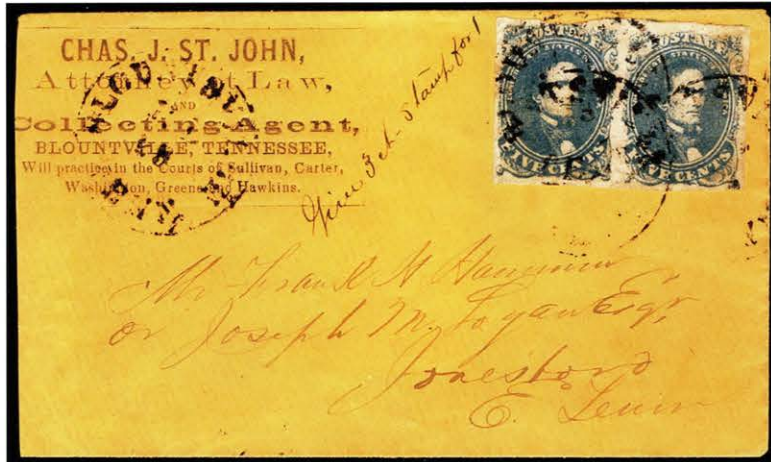 CHAS. J. ST. JOHN,
Attorney at Law,
AND
Collecting Agent,
BLOUNTVILLE, TENNESSEE,
Will practice in the Courts of Sullivan, Carter,
Washington, Greene and Hawkins.
3 ct. Stamp for 1
POSTAGE
FIVE CENTS
POSTAGE
FIVE CENTS
Mr Frank H
or Joseph M. Logan Esqr,
Jonesboro
E. Tenn